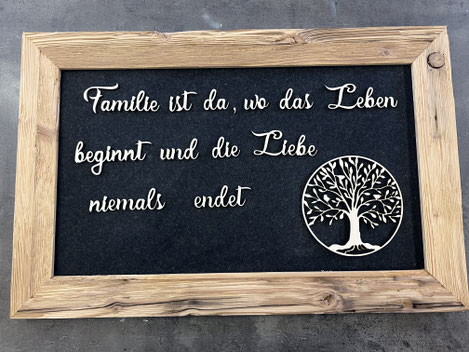 Familie ist da, wo das Leben
beginnt und die Liebe
niemals endet